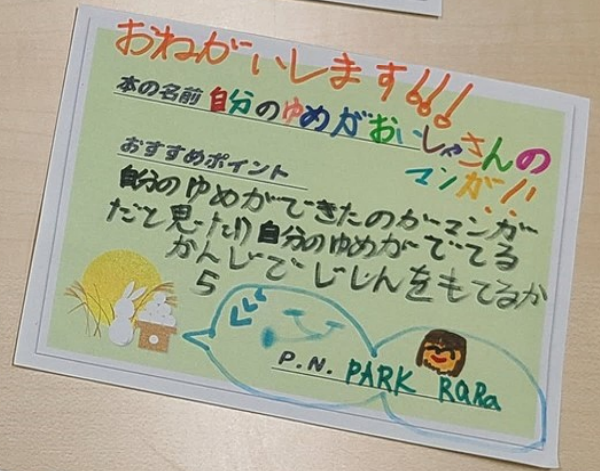 おねがいします!!!
本の名前 自分のゆめがおいしゃさんの
マンガ!!
おすすめポイント
自分のゆめができたのがマンガ
だと見たり自分のゆめがでてる
かんじでじしんをもてるか
ら
P.N. PARK RaRa